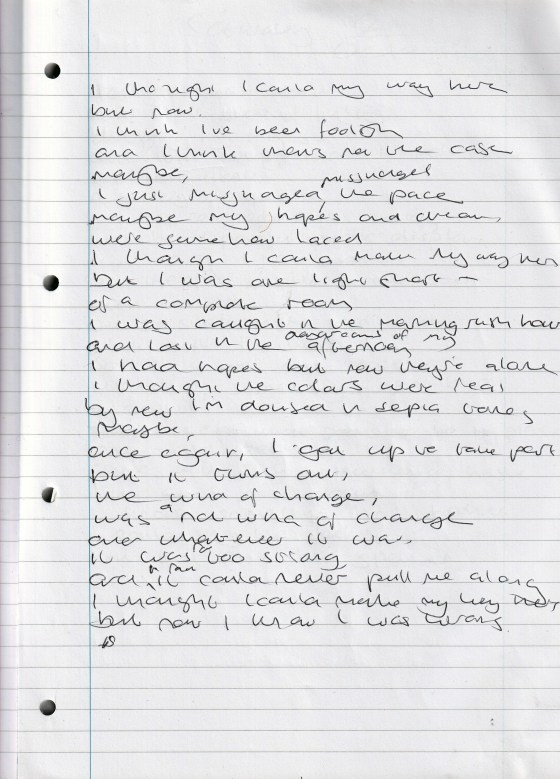 I thought I could my way here
but now.
I think I've been foolish
and I think that's not the case
maybe,
misjudged
I just misjudged, the pace
maybe my hopes and dreams,
were somehow laced
I thought I could make my way here
but I was one light short -
of a complete room
I was caught in the morning rush hour
and lost in the afternoon of my
afternoon
I had hopes but now they're alone
I thought the colours were real
by now I'm doused in sepia tones
Maybe,
once again, I got up to take part
but it turns out,
the wind of change,
was a not wind of change
and whatever it was,
it was too strong
and, it could never pull me along
I thought I could make my way here
but now I know I was wrong